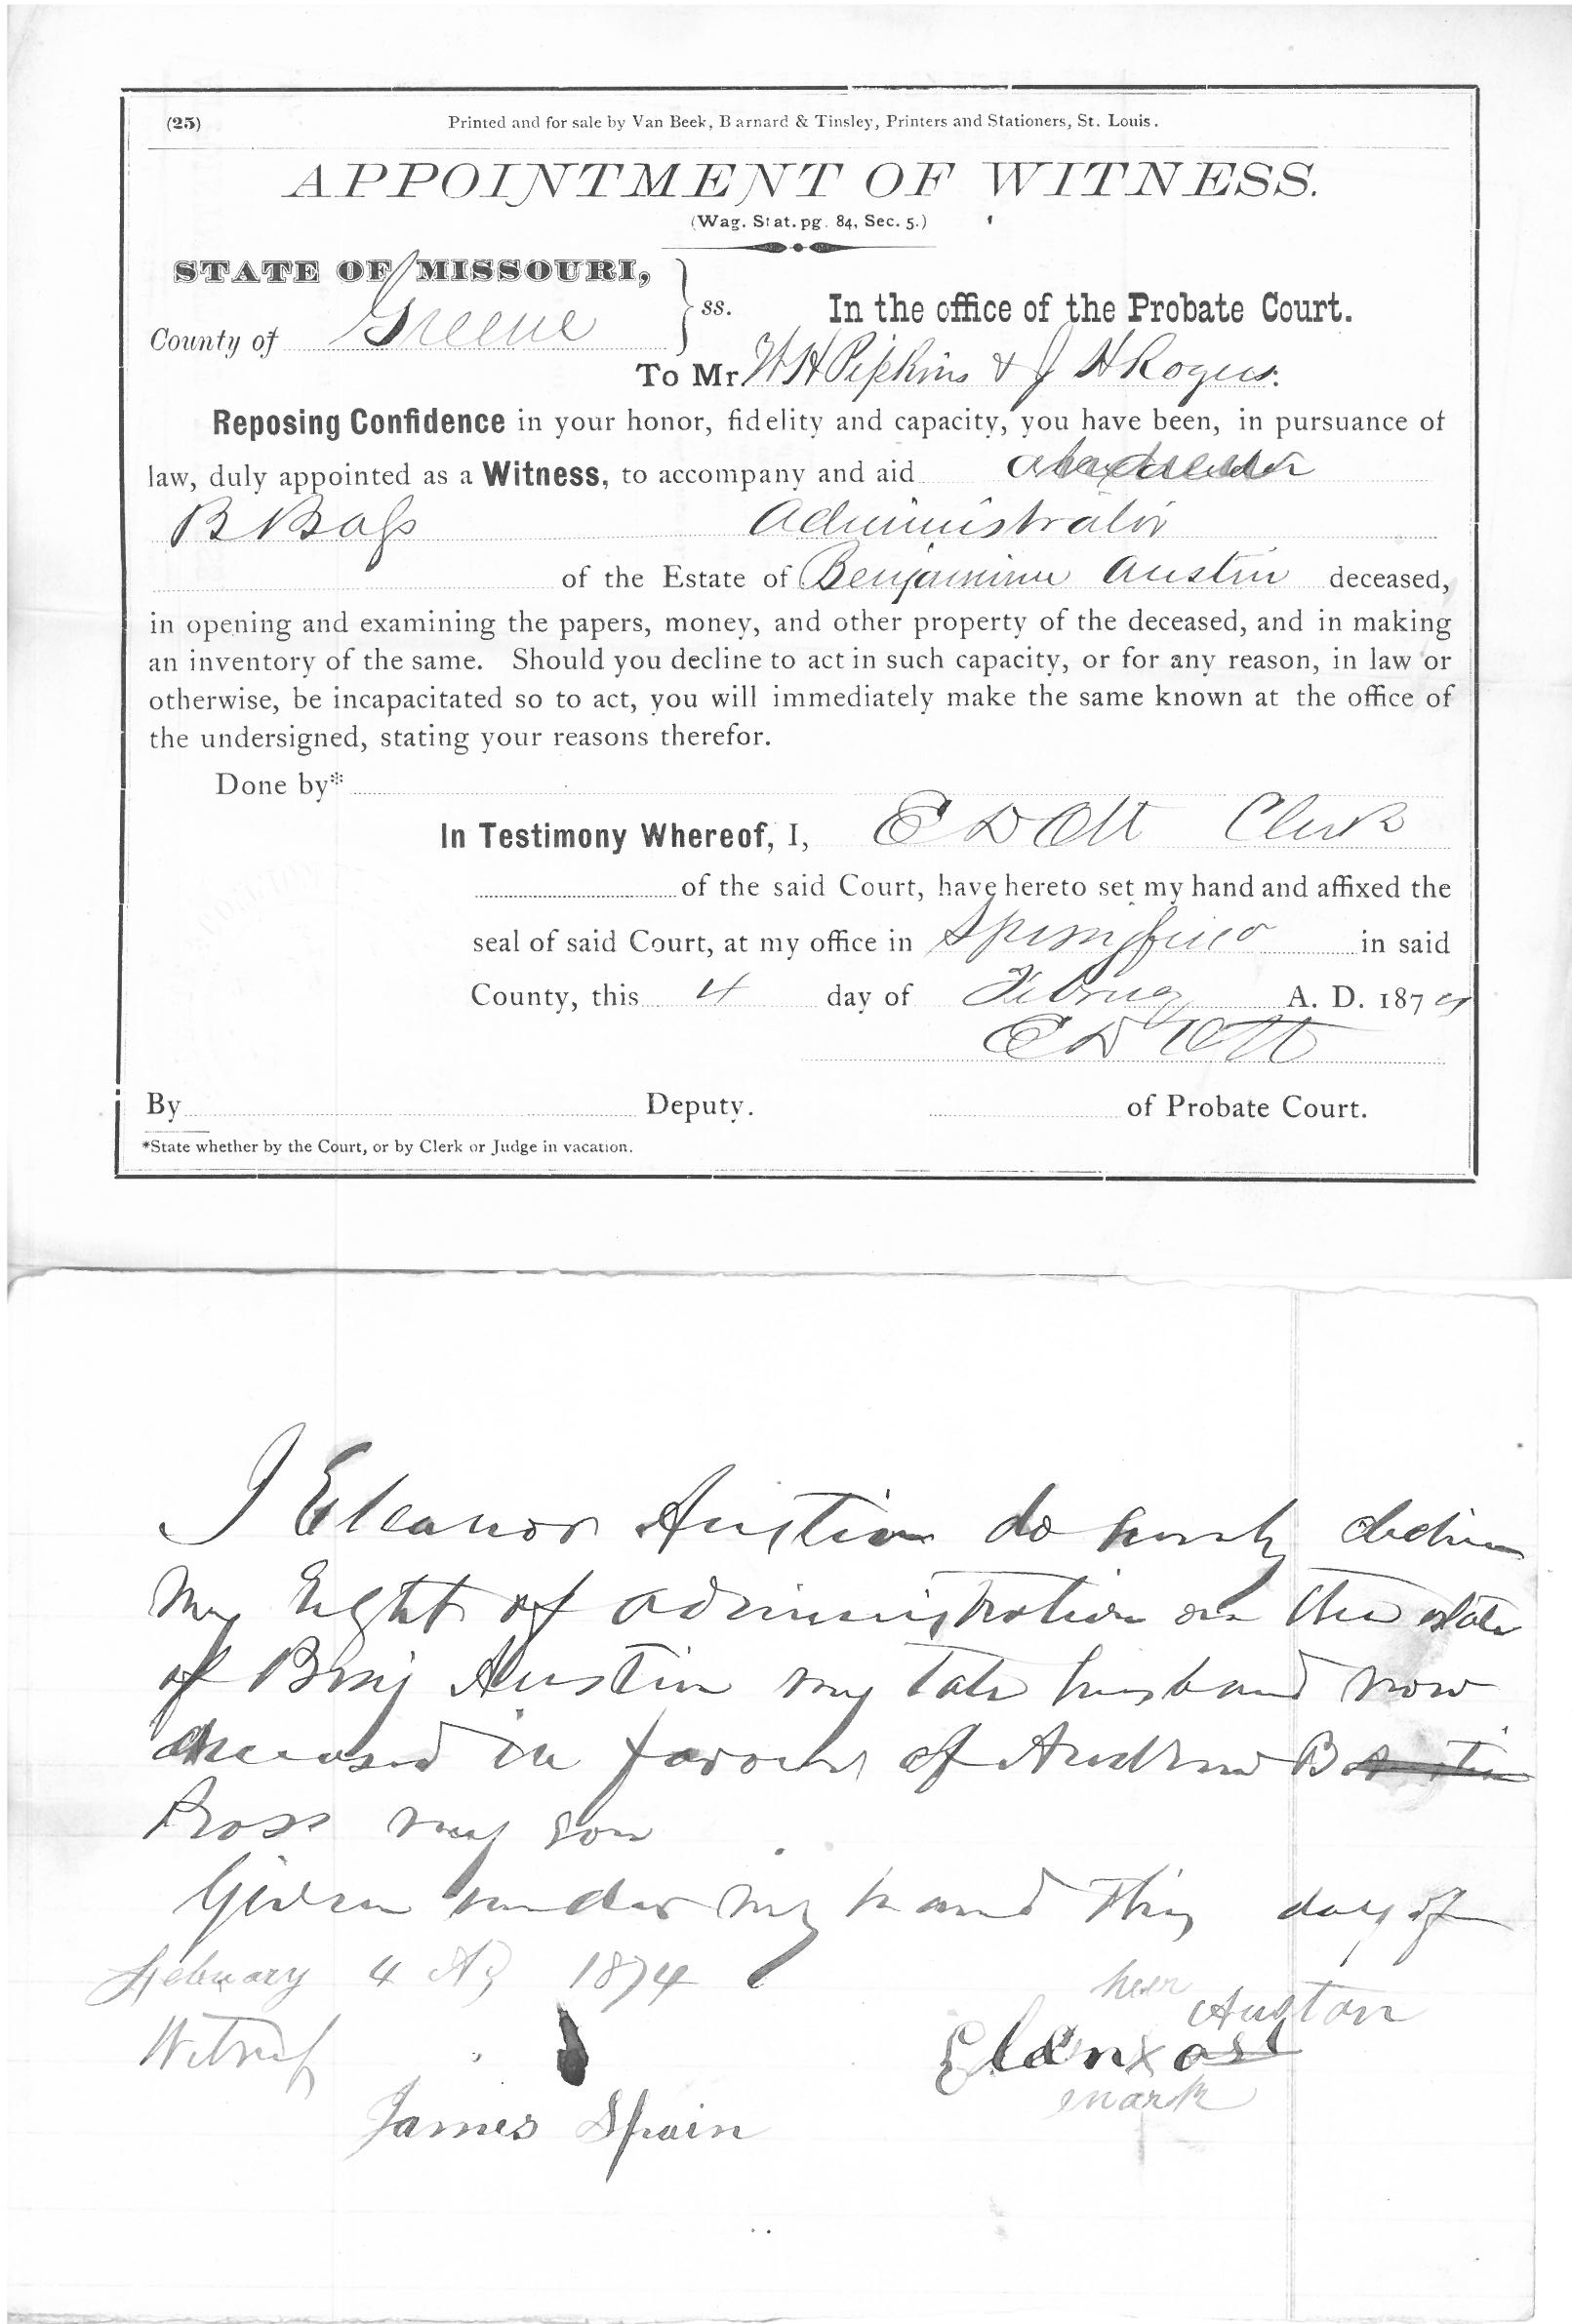 (25)
Printed and for sale by Van Beek, Barnard & Tinsley, Printers and Stationers, St. Louis.
APPOINTMENT OF WITNESS.
(Wag. Stat. pg. 84, Sec. 5.)
STATE OF MISSOURI,
County of Greene
ss.
In the office of the Probate Court.
To Mr W H Pipkins & J H Rogers.
Reposing Confidence in your honor, fidelity and capacity, you have been, in pursuance of
law, duly appointed as a Witness, to accompany and aid
B Administrator
of the Estate of Benjamine Austin deceased,
in opening and examining the papers, money, and other property of the deceased, and in making
an inventory of the same. Should you decline to act in such capacity, or for any reason, in law or
otherwise, be incapacitated so to act, you will immediately make the same known at the office of
the undersigned, stating your reasons therefor.
Done by*
In Testimony Whereof, I, E D Ott Clerk
of the said Court, have hereto set my hand and affixed the
seal of said Court, at my office in Springfield in said
County, this 4 day of A. D. 1874
E D Ott
By Deputy.
of Probate Court.
*State whether by the Court, or by Clerk or Judge in vacation.
I Eleanor Austin do hereby decline
my right of administration on the estate
of Benj Austin my late husband now
deceased in favour of Andrew B
Ross my son
Given under my hand this day of
February 4 AD 1874
her
Auston
Witness
Elen x
mark
James Spain